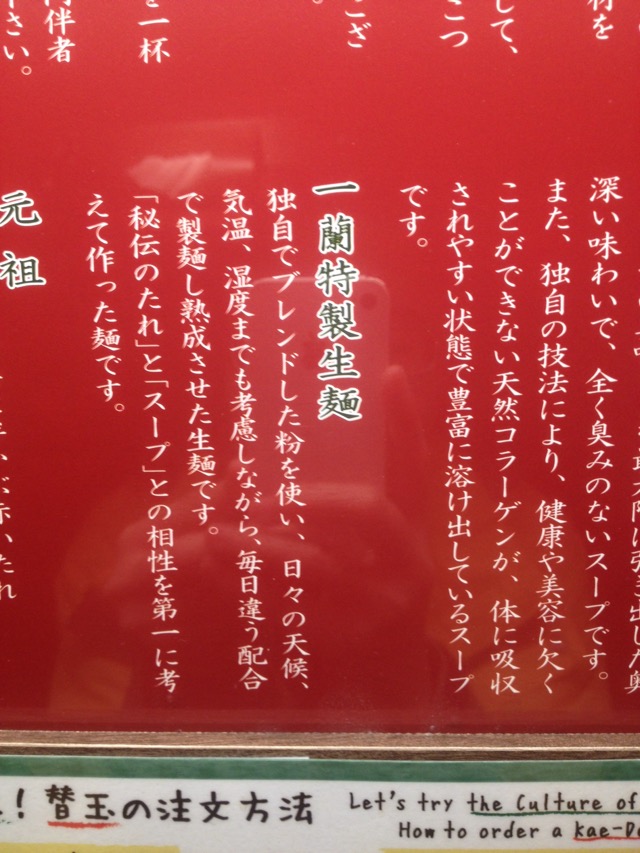 材を
して、
こつ
ござ
を一杯
同伴者
さい。
深い味わいで、全く臭みのないスープです。
また、独自の技法により、健康や美容に欠く
ことができない天然コラーゲンが、体に吸収
されやすい状態で豊富に溶け出しているスープ
です。
一蘭特製生麺
独自でブレンドした粉を使い、日々の天候、
気温、湿度までも考慮しながら、毎日違う配合
で製麺し熟成させた生麺です。
「秘伝のたれ」と「スープ」との相性を第一に考
えて作った麺です。
元祖
！替玉の注文方法
Let's try the Culture of
How to order a kae-Da